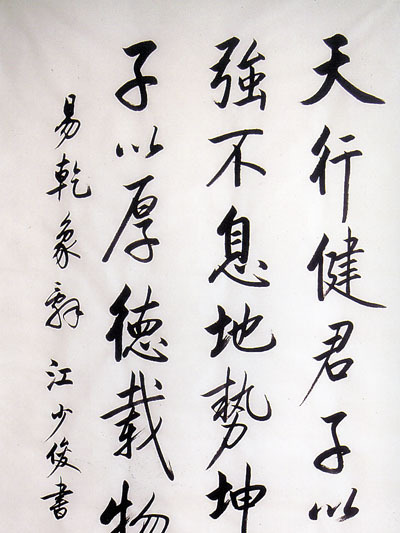 天行健君子以
強不息地勢坤
子以厚德載物
易乾象辭 江少俊書